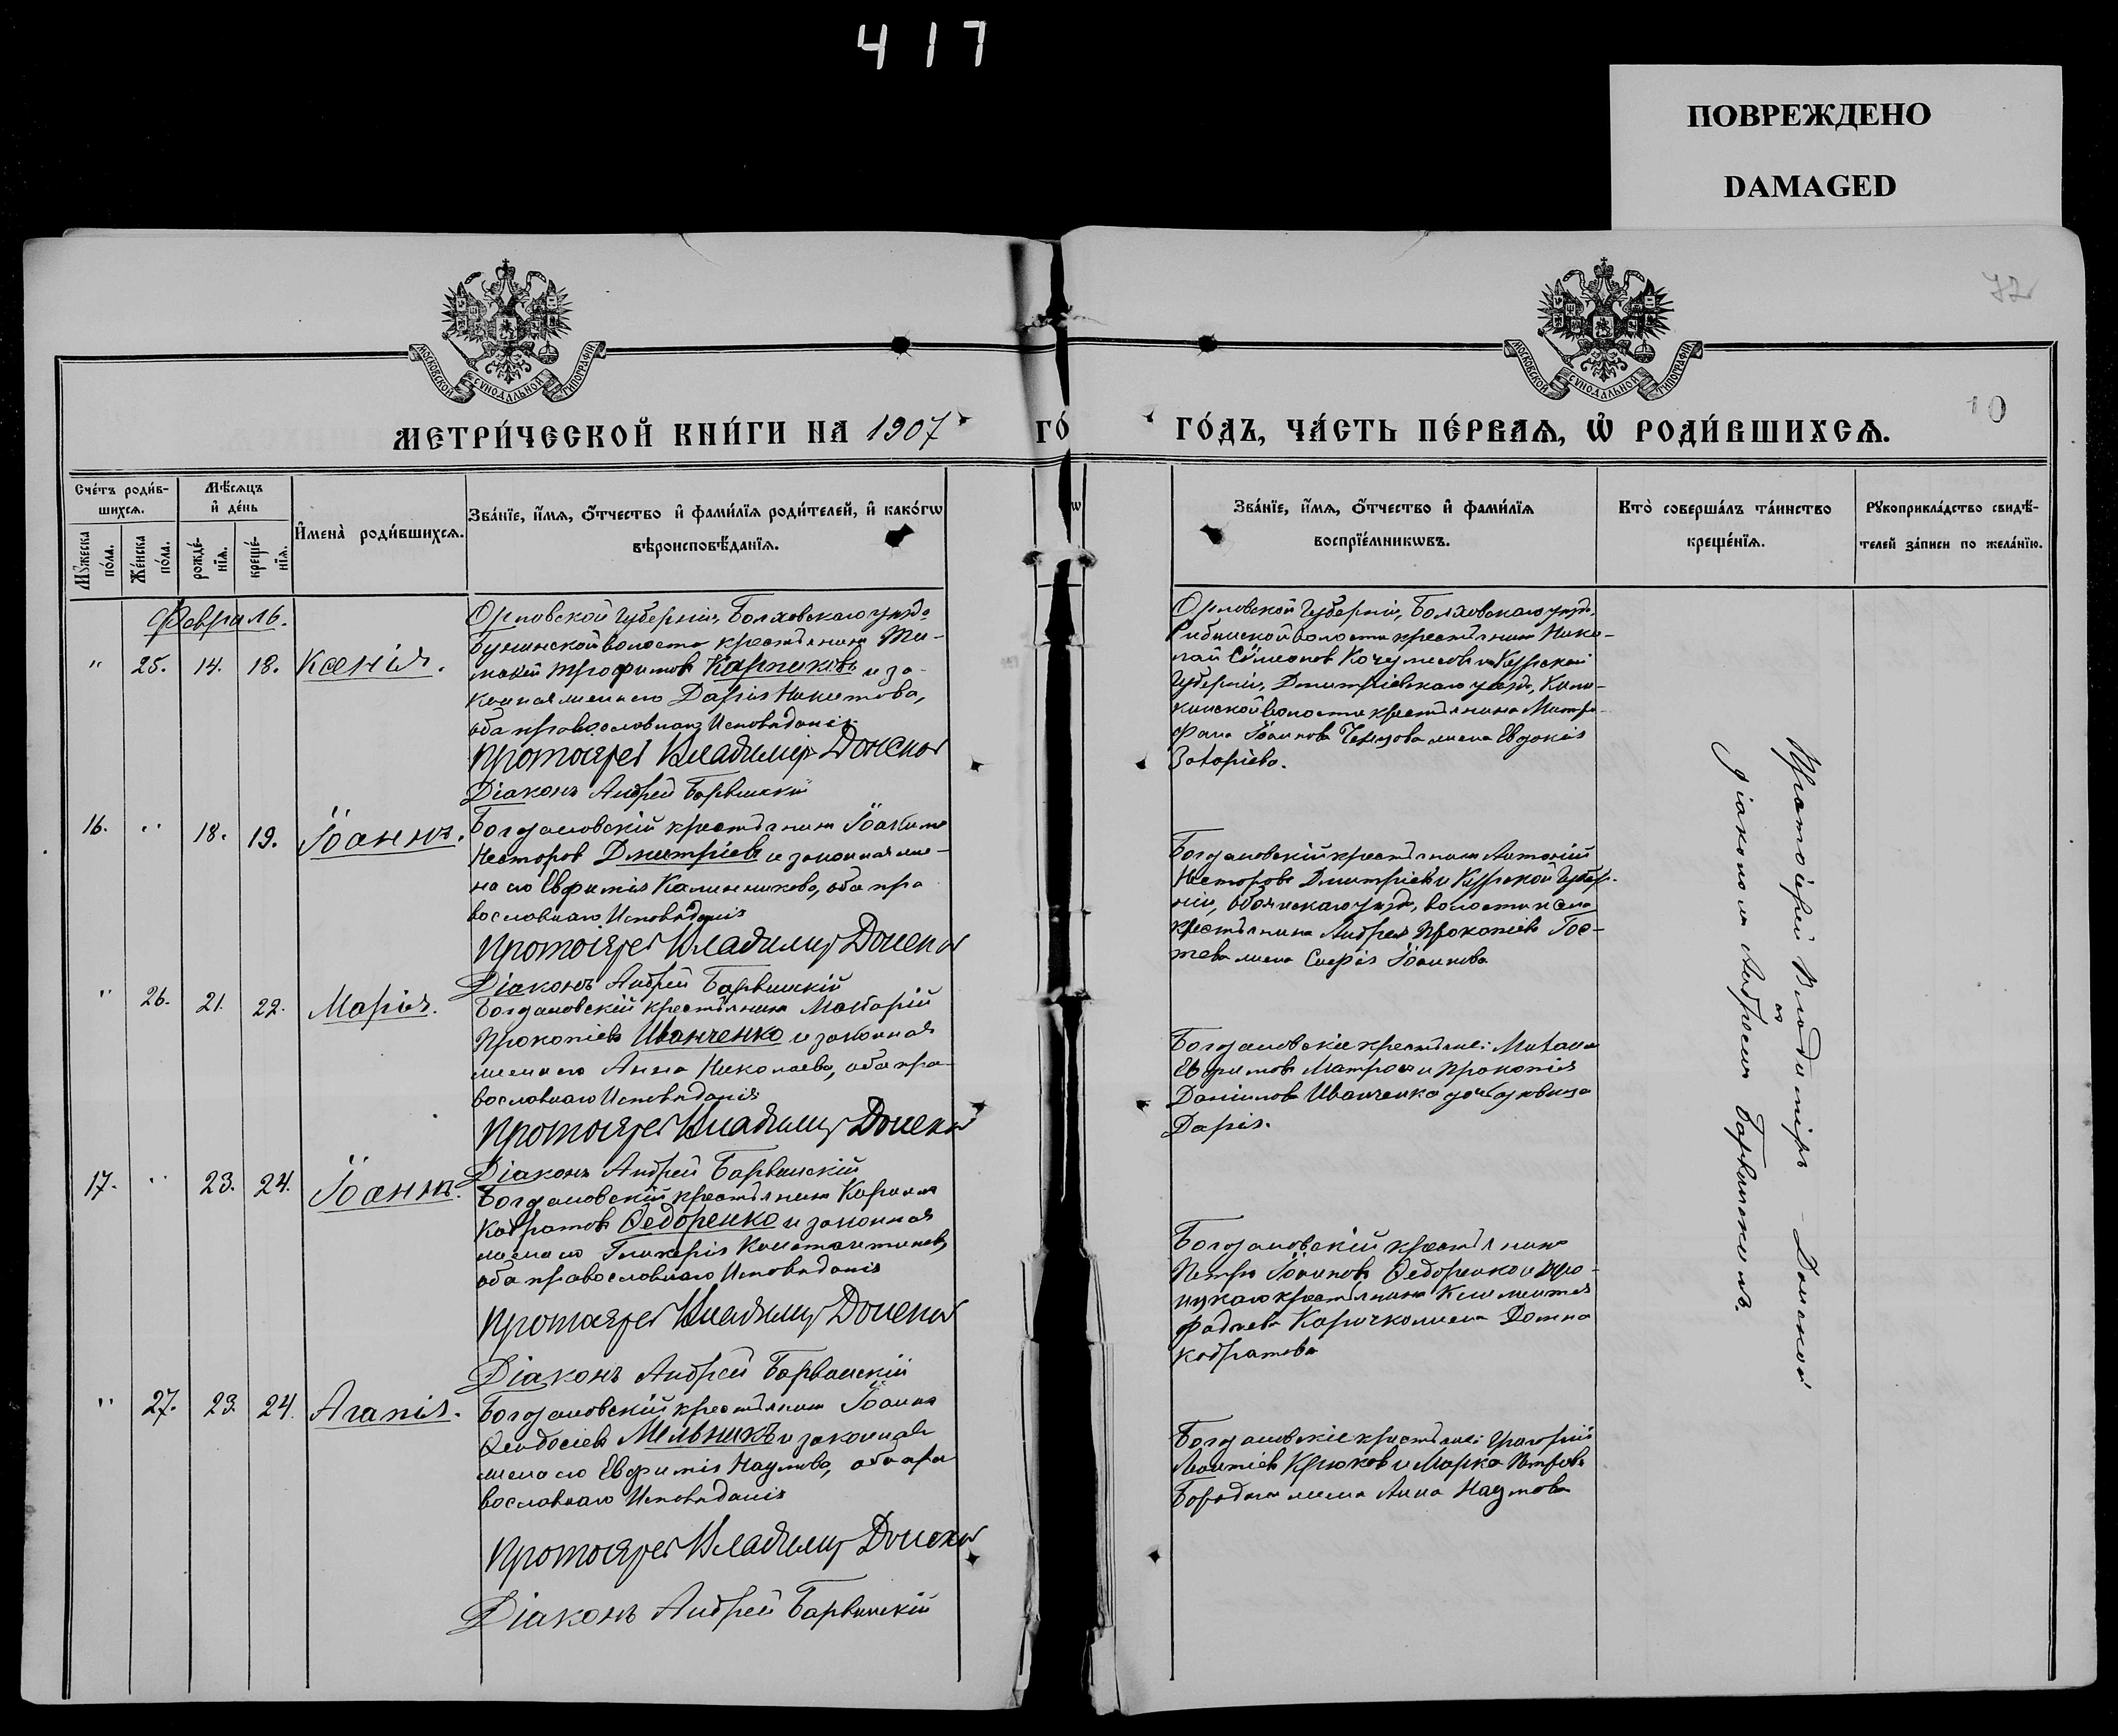 417
ПОВРЕЖДЕНО
DAMAGED
72
10
МОСКОВСКОЙ СѴНОДАЛЬНОЙ ТИПОГРАФІИ
МОСКОВСКОЙ СѴНОДАЛЬНОЙ ТИПОГРАФІИ
МЕТРИ́ЧЕСКОЙ КНИ́ГИ НА 1907 ГО́
ГО́ДЪ, ЧА́СТЬ ПЕ́РВАѦ, Ѡ РОДИ́ВШИХСѦ.
Сче́тъ роди́в-
шихсѧ.
Мꙋ́жеска по́ла.
Же́нска по́ла.
Мѣ́сѧцъ
и҆ де́нь
рожде́-
нїѧ.
креще́-
нїѧ.
И҆мена̀ роди́вшихсѧ.
Зва́нїе, и҆́мѧ, ѻ҆́тчество и҆ фами́лїѧ роди́телей, и҆ како́гѡ
вѣроисповѣ́данїѧ.
Зва́нїе, и҆́мѧ, ѻ҆́тчество и҆ фами́лїѧ
воспрїе́мникѡвъ.
Кто̀ соверша́лъ та́инство
креще́нїѧ.
Рꙋкоприкла́дство свидѣ́-
телей за́писи по жела́нїю.
Февраль.
" 25. 14. 18. Ксенія.
Орловской Губерніи, Болховскаго уѣзда
волости крестьянинъ Ти-
мофей Трофимовъ Карпиковъ и за-
конная жена его Дарія Никитова,
оба православнаго Исповѣданія
Протоіерей Владиміръ Донской
Діаконъ Андрей Барвинскій
Орловской Губерніи, Болховскаго уѣзда,
волости крестьянинъ Нико-
лай Сѵмеоновъ и Курской
Губерніи, Дмитріевскаго уѣзда,
волости крестьянина Митро-
фана Іоаннова жена Евдокія
Захаріева.
16. " 18. 19. Іоаннъ.
Богдановскій крестьянинъ Іоакимъ
Несторовъ Дмитріевъ и законная же-
на его Евфимія Калинникова, оба пра
вославнаго Исповѣданія
Протоіерей Владиміръ Донской
Діаконъ Андрей Барвинскій
Богдановскій крестьянинъ Антоній
Несторовъ Дмитріевъ и Курской Губер-
ніи, Обоянскаго уѣзда, волости и села
крестьянина Андрея Прокопіева Гос-
тева жена Софія Іоаннова
" 26. 21. 22. Марія.
Богдановскій крестьянинъ Макарій
Прокопіевъ Иванченко и законная
жена его Анна Николаева, оба пра-
вославнаго Исповѣданія
Протоіерей Владиміръ Донской
Діаконъ Андрей Барвинскій
Богдановскіе крестьяне: Михаилъ
Евфимовъ и Прокопія
Даніилова Иванченко дочь дѣвица
Дарія.
17. " 23. 24. Іоаннъ.
Богдановскій крестьянинъ
Кодратовъ Ѳедоренко и законная
жена его Гликерія Константинова,
оба православнаго Исповѣданія
Протоіерей Владиміръ Донской
Діаконъ Андрей Барвинскій
Богдановскій крестьянинъ
Петръ Іоанновъ Ѳедоренко и
крестьянина Климентія
Фадѣева жена Домна
Кодратова
" 27. 23. 24. Агапія.
Богдановскій крестьянинъ Іоаннъ
Ѳеодосіевъ Мельникъ и законная
жена его Евфимія Наумова, оба пра
вославнаго Исповѣданія
Протоіерей Владиміръ Донской
Діаконъ Андрей Барвинскій
Богдановскіе крестьяне: Григорій
Леонтіевъ Крюковъ и Марка Петрова
жена Анна Наумова
Протоіерей Владиміръ Донской
съ
діакономъ Андреемъ Барвинскимъ.